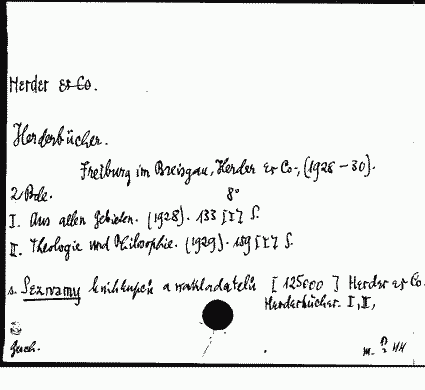 Herder & Co.
Herderbücher.
Freiburg im Breisgau, Herder & Co., (1928 – 30).
2 Bde. 8°
I. Aus allen Gebieten. (1928). 133 [I] S.
II. Theologie und Philosophie. (1929). 159 [I] S.
s. Seznamy knihkupců a nakladatelů [125000] Herder & Co.
Herderbücher. I, II,